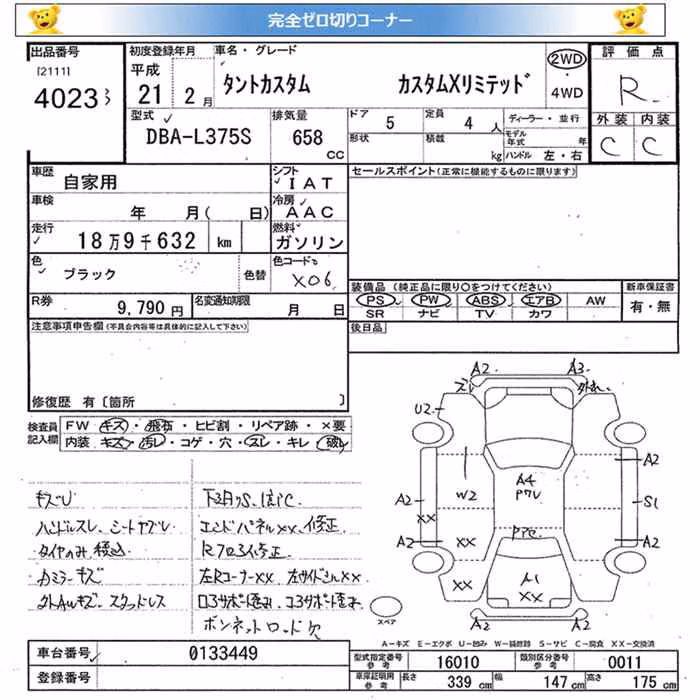 完全ゼロ切りコーナー
出品番号 初度登録年月 車名・グレード 2WD 評価点
[2111] 平成 タントカスタム カスタムXリミテッド ・ R
4023 21 2月 4WD
型式 排気量 ドア 5 定員 4人 ディーラー・並行 外装 内装
DBA-L375S 658 cc 形状 積載 kg モデル年式 年 C C
ハンドル 左・右
車歴 自家用 シフト IAT セールスポイント(正常に機能するものに限ります)
車検 年 月( 日) 冷房 AAC
走行 18万9千632 km 燃料 ガソリン
色 ブラック 色替 色コード X06
装備品(純正品に限り○をつけてください) 新車保証書
R券 9,790円 名変通知期限 月 日 PS PW ABS エアB AW 有・無
SR ナビ TV カワ
注意事項申告欄(不具合内容等は具体的に記入して下さい) 後日品
修復歴 有〔箇所 〕
検査員記入欄 FW キズ・飛石・ヒビ割・リペア跡・×要
内装 キズ・汚レ・コゲ・穴・スレ・キレ・破レ
A2 A3
U2 スレ 外れ
A2 W2 A4 A2 S1
XX アワレ
A2 XX A2
XX A1 XX
A2 A2
スペア
キズU 下廻りS、サビC
ハンドルスレ、シートヤブレ エンドパネルXX、修正
タイヤのみ積込 Rフロア修正
カミラーキズ 左RコーナーXX
ボンネットロッド欠
A-キズ E-エクボ U-凹み W-補修跡 S-サビ C-腐食 XX-交換済
車台番号 0133449 型式指定番号 参考 16010 類別区分番号 参考 0011
登録番号 車庫証明用 参考 長さ 339cm 幅 147cm 高さ 175cm